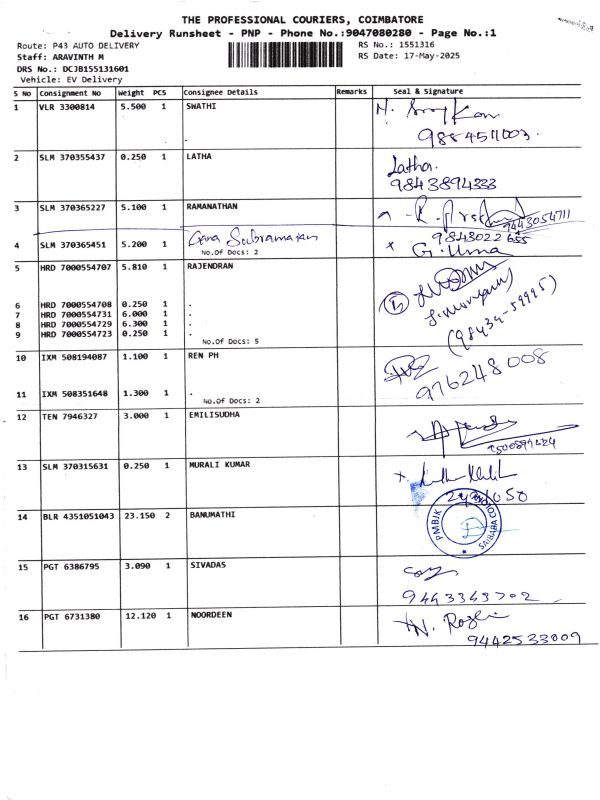 THE PROFESSIONAL COURIERS, COIMBATORE
Delivery Runsheet - PNP - Phone No.:9047080280 - Page No.:1
Route: P43 AUTO DELIVERY
RS No.: 1551316
Staff: ARAVINTH M
RS Date: 17-May-2025
DRS No.: DCJB155131601
Vehicle: EV Delivery
S No Consignment No Weight PCS Consignee Details Remarks Seal & Signature
1 VLR 3300814 5.500 1 SWATHI
.
2 SLM 370355437 0.250 1 LATHA Latha.
9843894333
3 SLM 370365227 5.100 1 RAMANATHAN
9443054711
9843022655
4 SLM 370365451 5.200 1 x G. Uma
No.Of Docs: 2
5 HRD 7000554707 5.810 1 RAJENDRAN
6 HRD 7000554708 0.250 1 .
7 HRD 7000554731 6.000 1 .
8 HRD 7000554729 6.300 1 .
9 HRD 7000554723 0.250 1 .
(98434-59995)
No.Of Docs: 5
10 IXM 508194087 1.100 1 REN PH
976248008
11 IXM 508351648 1.300 1 .
No.Of Docs: 2
12 TEN 7946327 3.000 1 EMILISUDHA
13 SLM 370315631 0.250 1 MURALI KUMAR
14 BLR 4351051043 23.150 2 BANUMATHI
PMBJK
SAIBABA COLONY
15 PGT 6386795 3.090 1 SIVADAS
9443343702
16 PGT 6731380 12.120 1 NOORDEEN
9442533009